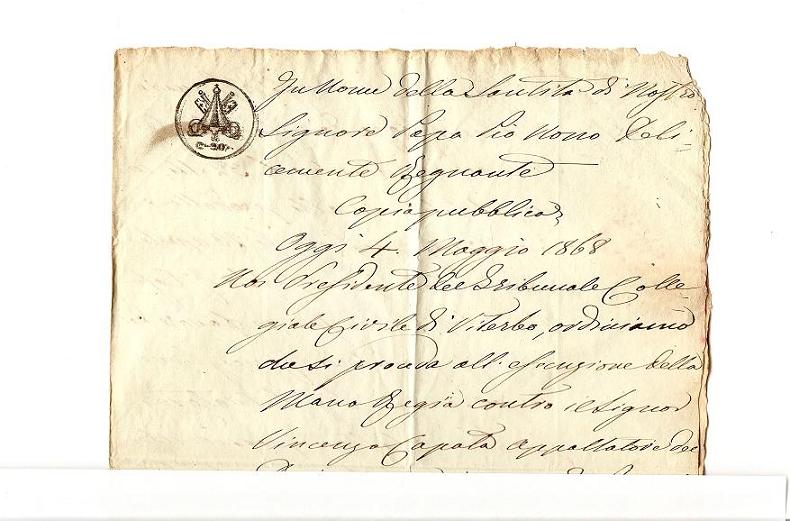 C. 20.
In Nome della Santità di Nostro
Signore Papa Pio Nono Feli-
cemente Regnante
Copia pubblica
Oggi 4. Maggio 1868
Noi Presidente del Tribunale Colle-
giale Civile di Viterbo, ordiniamo
che si proceda all'esecuzione della
Mano Regia contro il Signor
Vincenzo Capata appaltatore dei